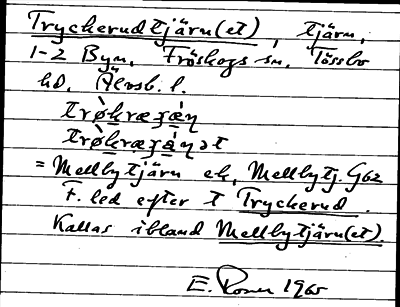 Tryckerudtjärn(et), tjärn,
1-2 Bym, Fröskogs sn, Tössbo
hd, Älvsb. l.
= Mellbytjärn ek, Mellbytj. G62
F. led efter t Tryckerud.
Kallas ibland Mellbytjärn(et).
E. Rosen 1965